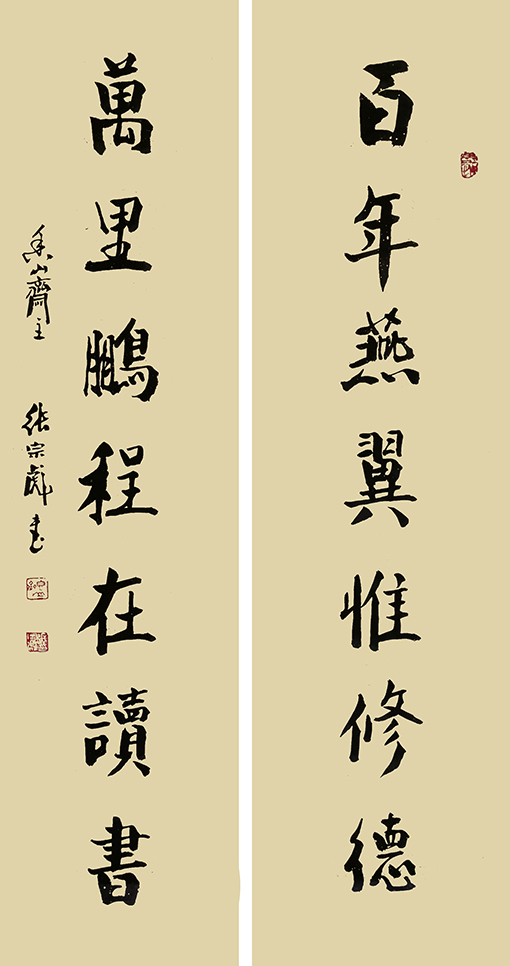 百年燕翼惟修德
萬里鵬程在讀書
山齋主
張宗彪書